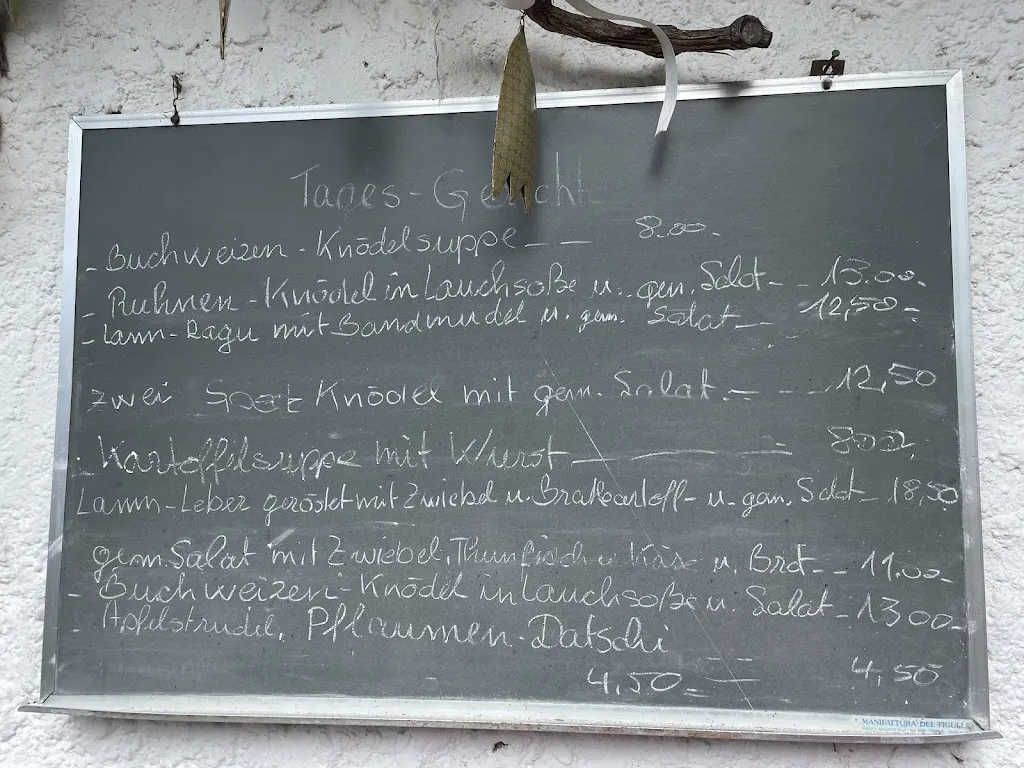 Tages-Gericht
- Buchweizen-Knödelsuppe -- 8.00.-
- Ruhnen-Knödel in Lauchsoße u. gem. Salat -- 13.00.-
- Lamm-Ragu mit Bandnudel u. gem. Salat -- 12,50.-
zwei Knödel mit gem. Salat.-- 12,50
- Kartoffelsuppe mit Wurst -- 8.00,
Lamm-Leber geröstet mit Zwiebel u. Bratkartoff- u- gem. Salat- 18,50
gem. Salat mit Zwiebel, Thunfisch u Käse u. Brot-- 11,00-
- Buchweizen-Knödel in Lauchsoße u. Salat- 13 00-
- Apfelstrudel, Pflaumen-Datschi
4,50.-- 4,50
MANIFATTURA DEL TIGULLIO